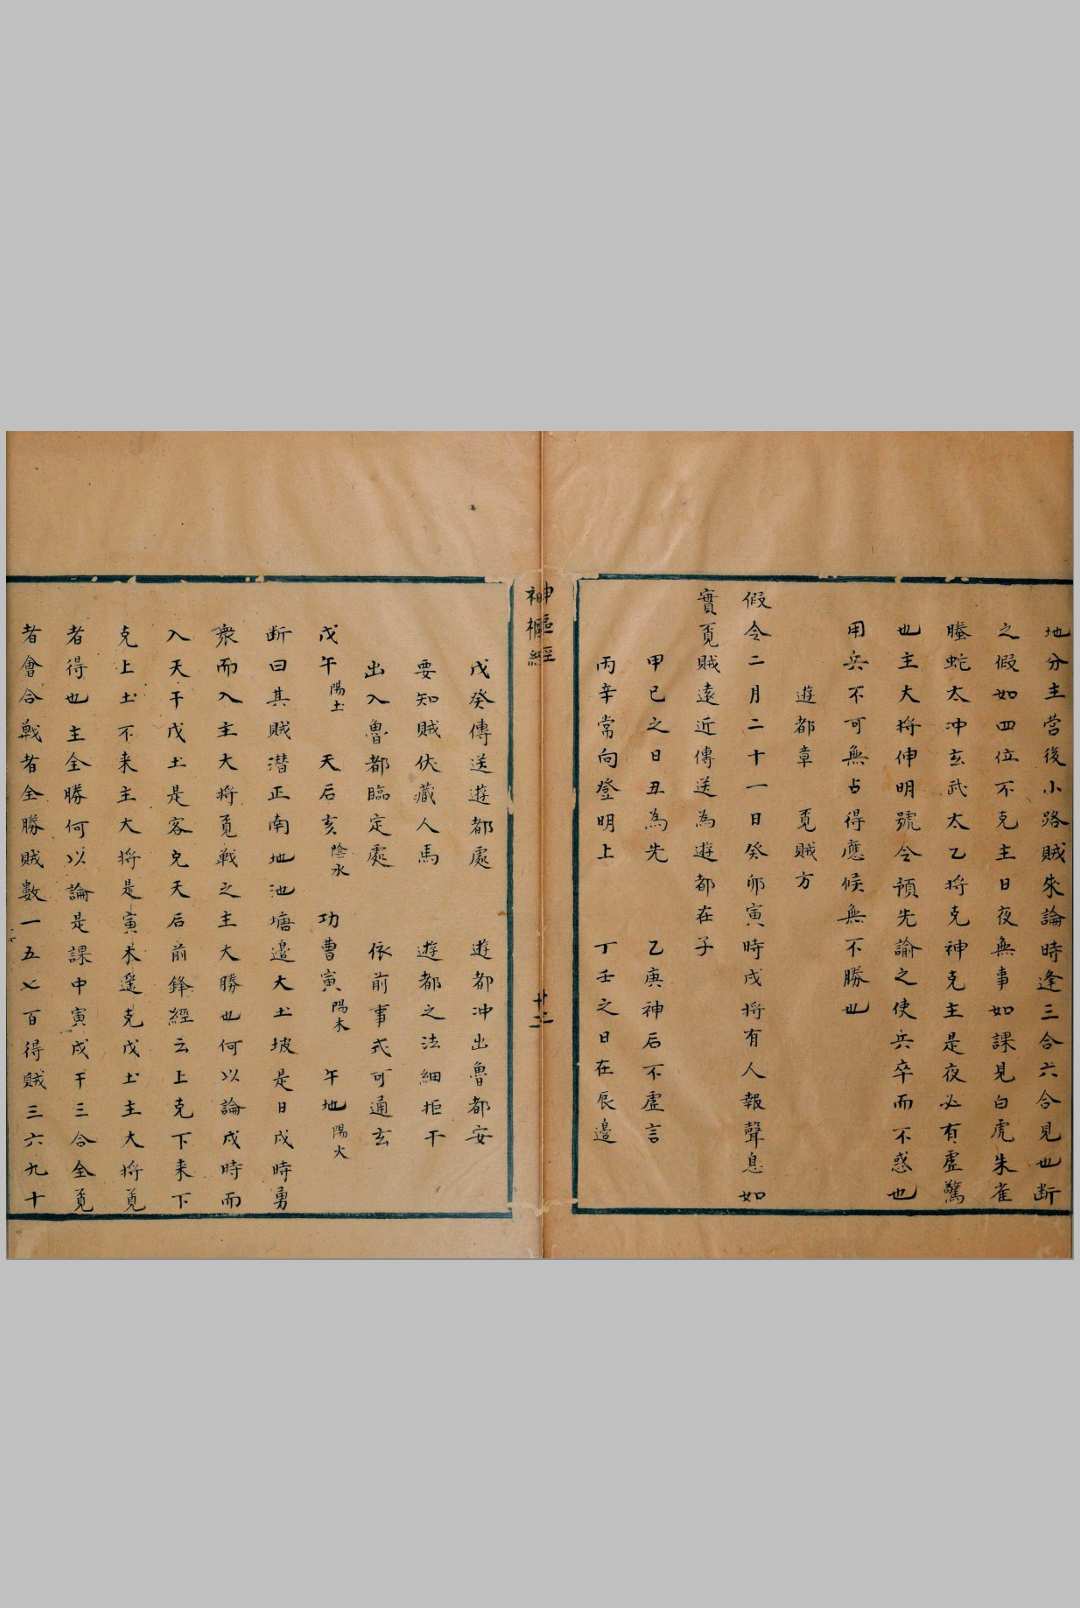 地分主営後小路賊來論時逢三合六合見也断
之假如四位不克主日夜無事如課見白虎朱雀
螣蛇太冲玄武太乙将克神克主是夜必有虛驚
也主大将伸明號令預先諭之使兵卒而不惑也
用兵不可無占得應候無不勝也
遊都章　覔賊方
假令二月二十一日癸卯寅時戌将有人報聲息如
實覔賊遠近傳送為遊都在子
甲己之日丑為先　乙庚神后不虛言
丙辛常向登明上　丁壬之日在辰邊
神樞經
廿二
戊癸傳送遊都處　遊都冲出魯都安
要知賊伏藏人馬　遊都之法細拒干
出入魯都臨定處　依前事式可通玄
戊午陽土　天后亥陰水　功曹寅陽木　午地陽火
断曰其賊潜正南地池塘邊大土坡是日戌時勇
衆而入主大将覔戰之主大勝也何以論戌時而
入天干戊土是客克天后前鋒經云上克下来下
克上土不来主大将是寅木遥克戊土主大将覔
者得也主全勝何以論是課中寅戌午三合全覔
者會合戰者全勝賊數一五七百得賊三六九十